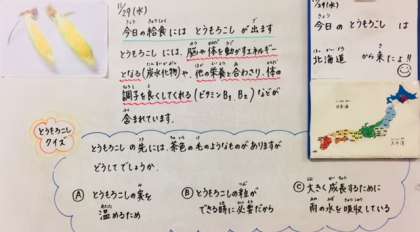 11/29(水)
今日の給食には とうもろこし が出ます
とうもろこし には、脳や体を動かすエネルギー
となる(炭水化物)や、他の栄養と合わさり、体の
調子を良くしてくれる(ビタミンB₁、B₂)などが
含まれています。
11/29(水)
今日の とうもろこし は
北海道 から来たよ!!
とうもろこし
クイズ
とうもろこし の先には、茶色の毛のようなものがありますが
どうしてでしょうか。
Ⓐ とうもろこしの実を
温めるため
Ⓑ とうもろこしの粒が
できる時に必要だから
Ⓒ 大きく成長するために
雨の水を吸収している
日本海
太平洋